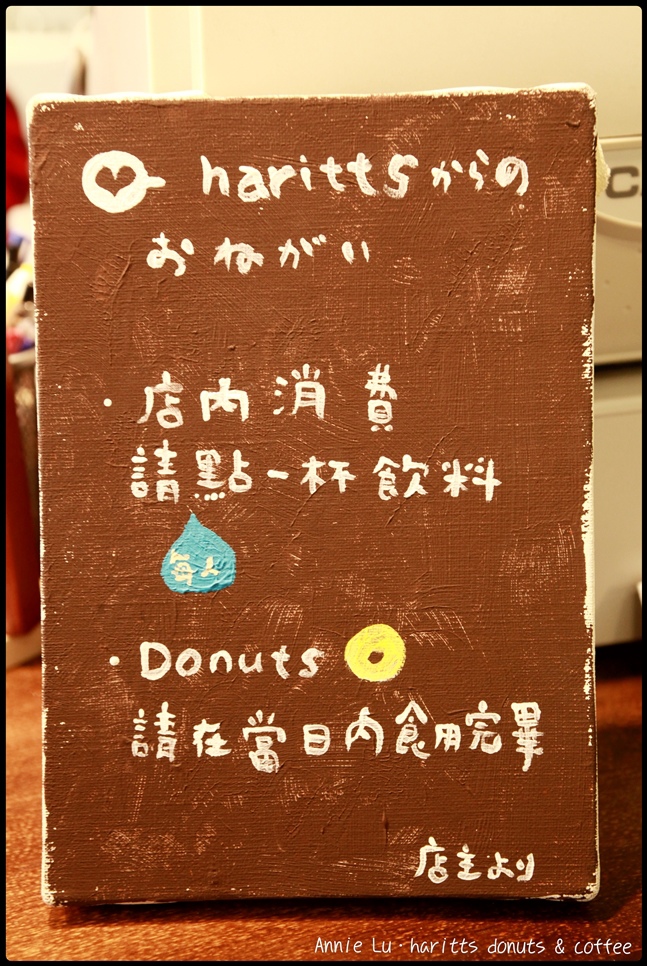 harittsからの
おねがい
・店内消費
請點一杯飲料
每人
・Donuts
請在當日內食用完畢
店主より
C
Annie Lu・haritts donuts & coffee